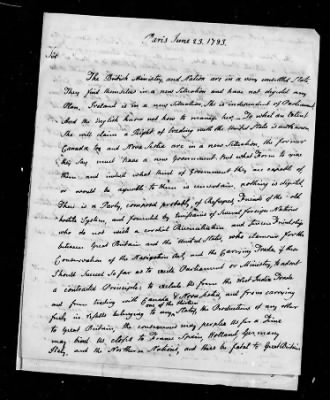 Paris June 23. 1783.
Sir
The British Ministry and Nation are in a very unsettled State.
They find themselves in a new Situation and have not digested any
Plan. Ireland is in a new Situation, She is independent of Parliament
And the English know not how to manage her. To what an Extent
She will claim a Right of trading with the United States is unknown.
Canada too and Nova Scotia are in a new Situation, the former
they Say must have a new Government. But what Form to give
them and indeed what kind of Government they are capable of
or would be agreable to them is uncertain. nothing is digested.
There is a Party, composed probably of Refugees, Friends of the old
hostile System, and fomented by Emissaries of Several foreign Nations
who do not wish a cordial Reconciliation and Sincere Friendship
between Great Britain and the United States, who clamour for the
Conservation of the Navigation Act, and the Carrying Trade. If these
Should Succeed So far as to excite Parliament or Ministry, to adopt
a contracted Principle; to exclude Us from the West India Trade
and from trading with Canada & Nova Scotia, and from carrying
fully, in vessels belonging to any one of the thirteen States, the Productions of any other
to Great Britain, the consequence may perplex Us for a Time
may bind Us closer to France Spain, Holland, Germany
Italy, and the Northern Nations, and thus be fatal to Great Britain